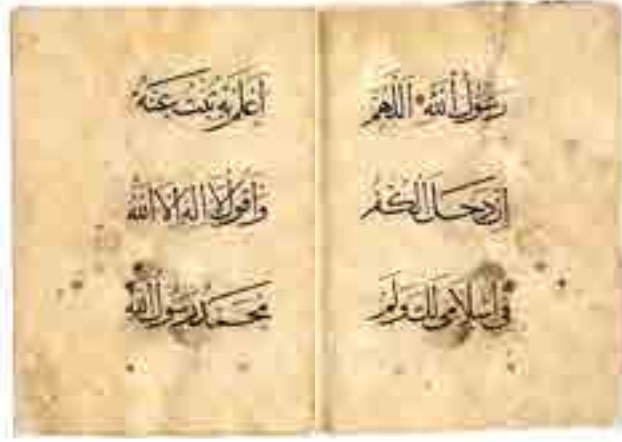 رَسُولُ اللهِ اَللّٰهُمَّ
اِنْ دَخَلَ الْكُفْرُ
فِي اِسْلَامِي بِكَ وَلَمْ
اَعْلَمْ بِهِ تُبْتُ عَنْهُ
وَاَقُولُ لَا اِلٰهَ اِلَّا اللهُ
مُحَمَّدٌ رَسُولُ اللهِ